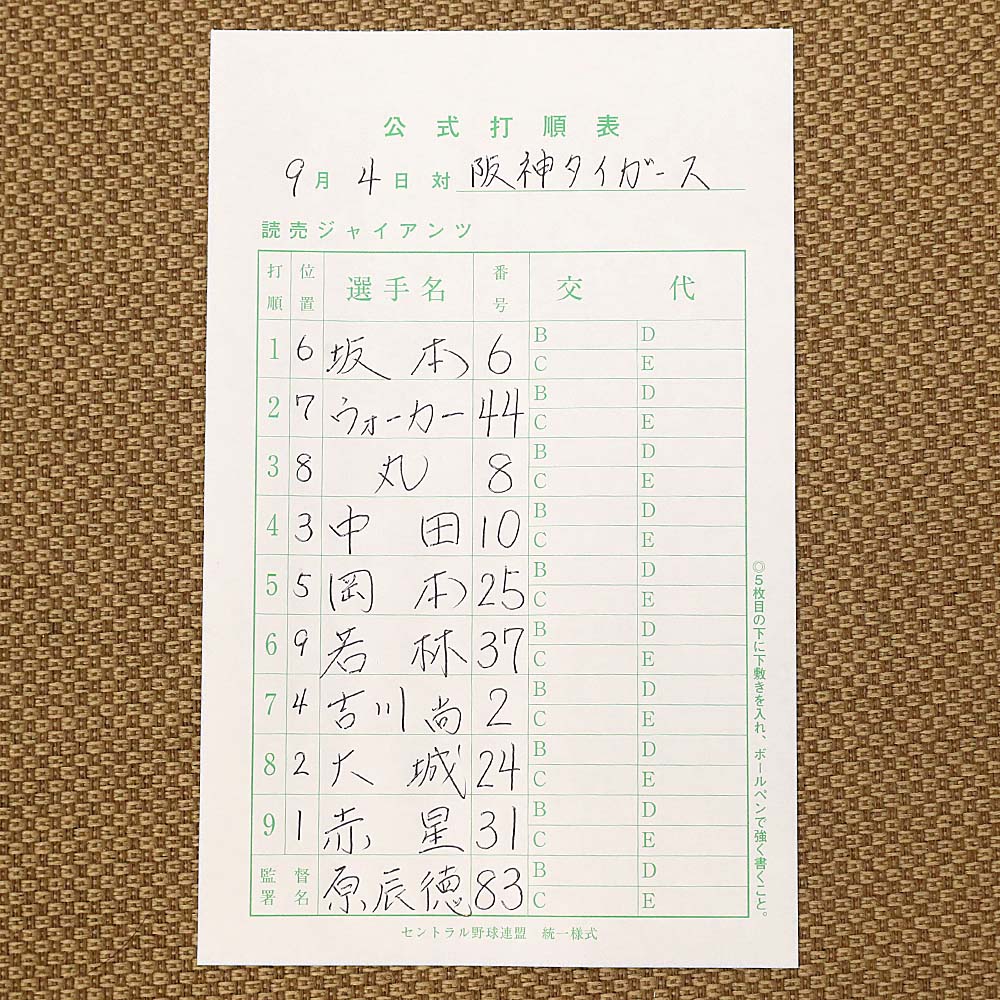 公式打順表
9月4日対 阪神タイガース
読売ジャイアンツ
打順 位置 選手名 番号 交代
1 6 坂本 6 B D C E
2 7 ウォーカー 44 B D C E
3 8 丸 8 B D C E
4 3 中田 10 B D C E
5 5 岡本 25 B D C E
6 9 若林 37 B D C E
7 4 吉川尚 2 B D C E
8 2 大城 24 B D C E
9 1 赤星 31 B D C E
監督署名 原辰徳 83 B D C E
セントラル野球連盟 統一様式
◎5枚目の下に下敷きを入れ、ボールペンで強く書くこと。